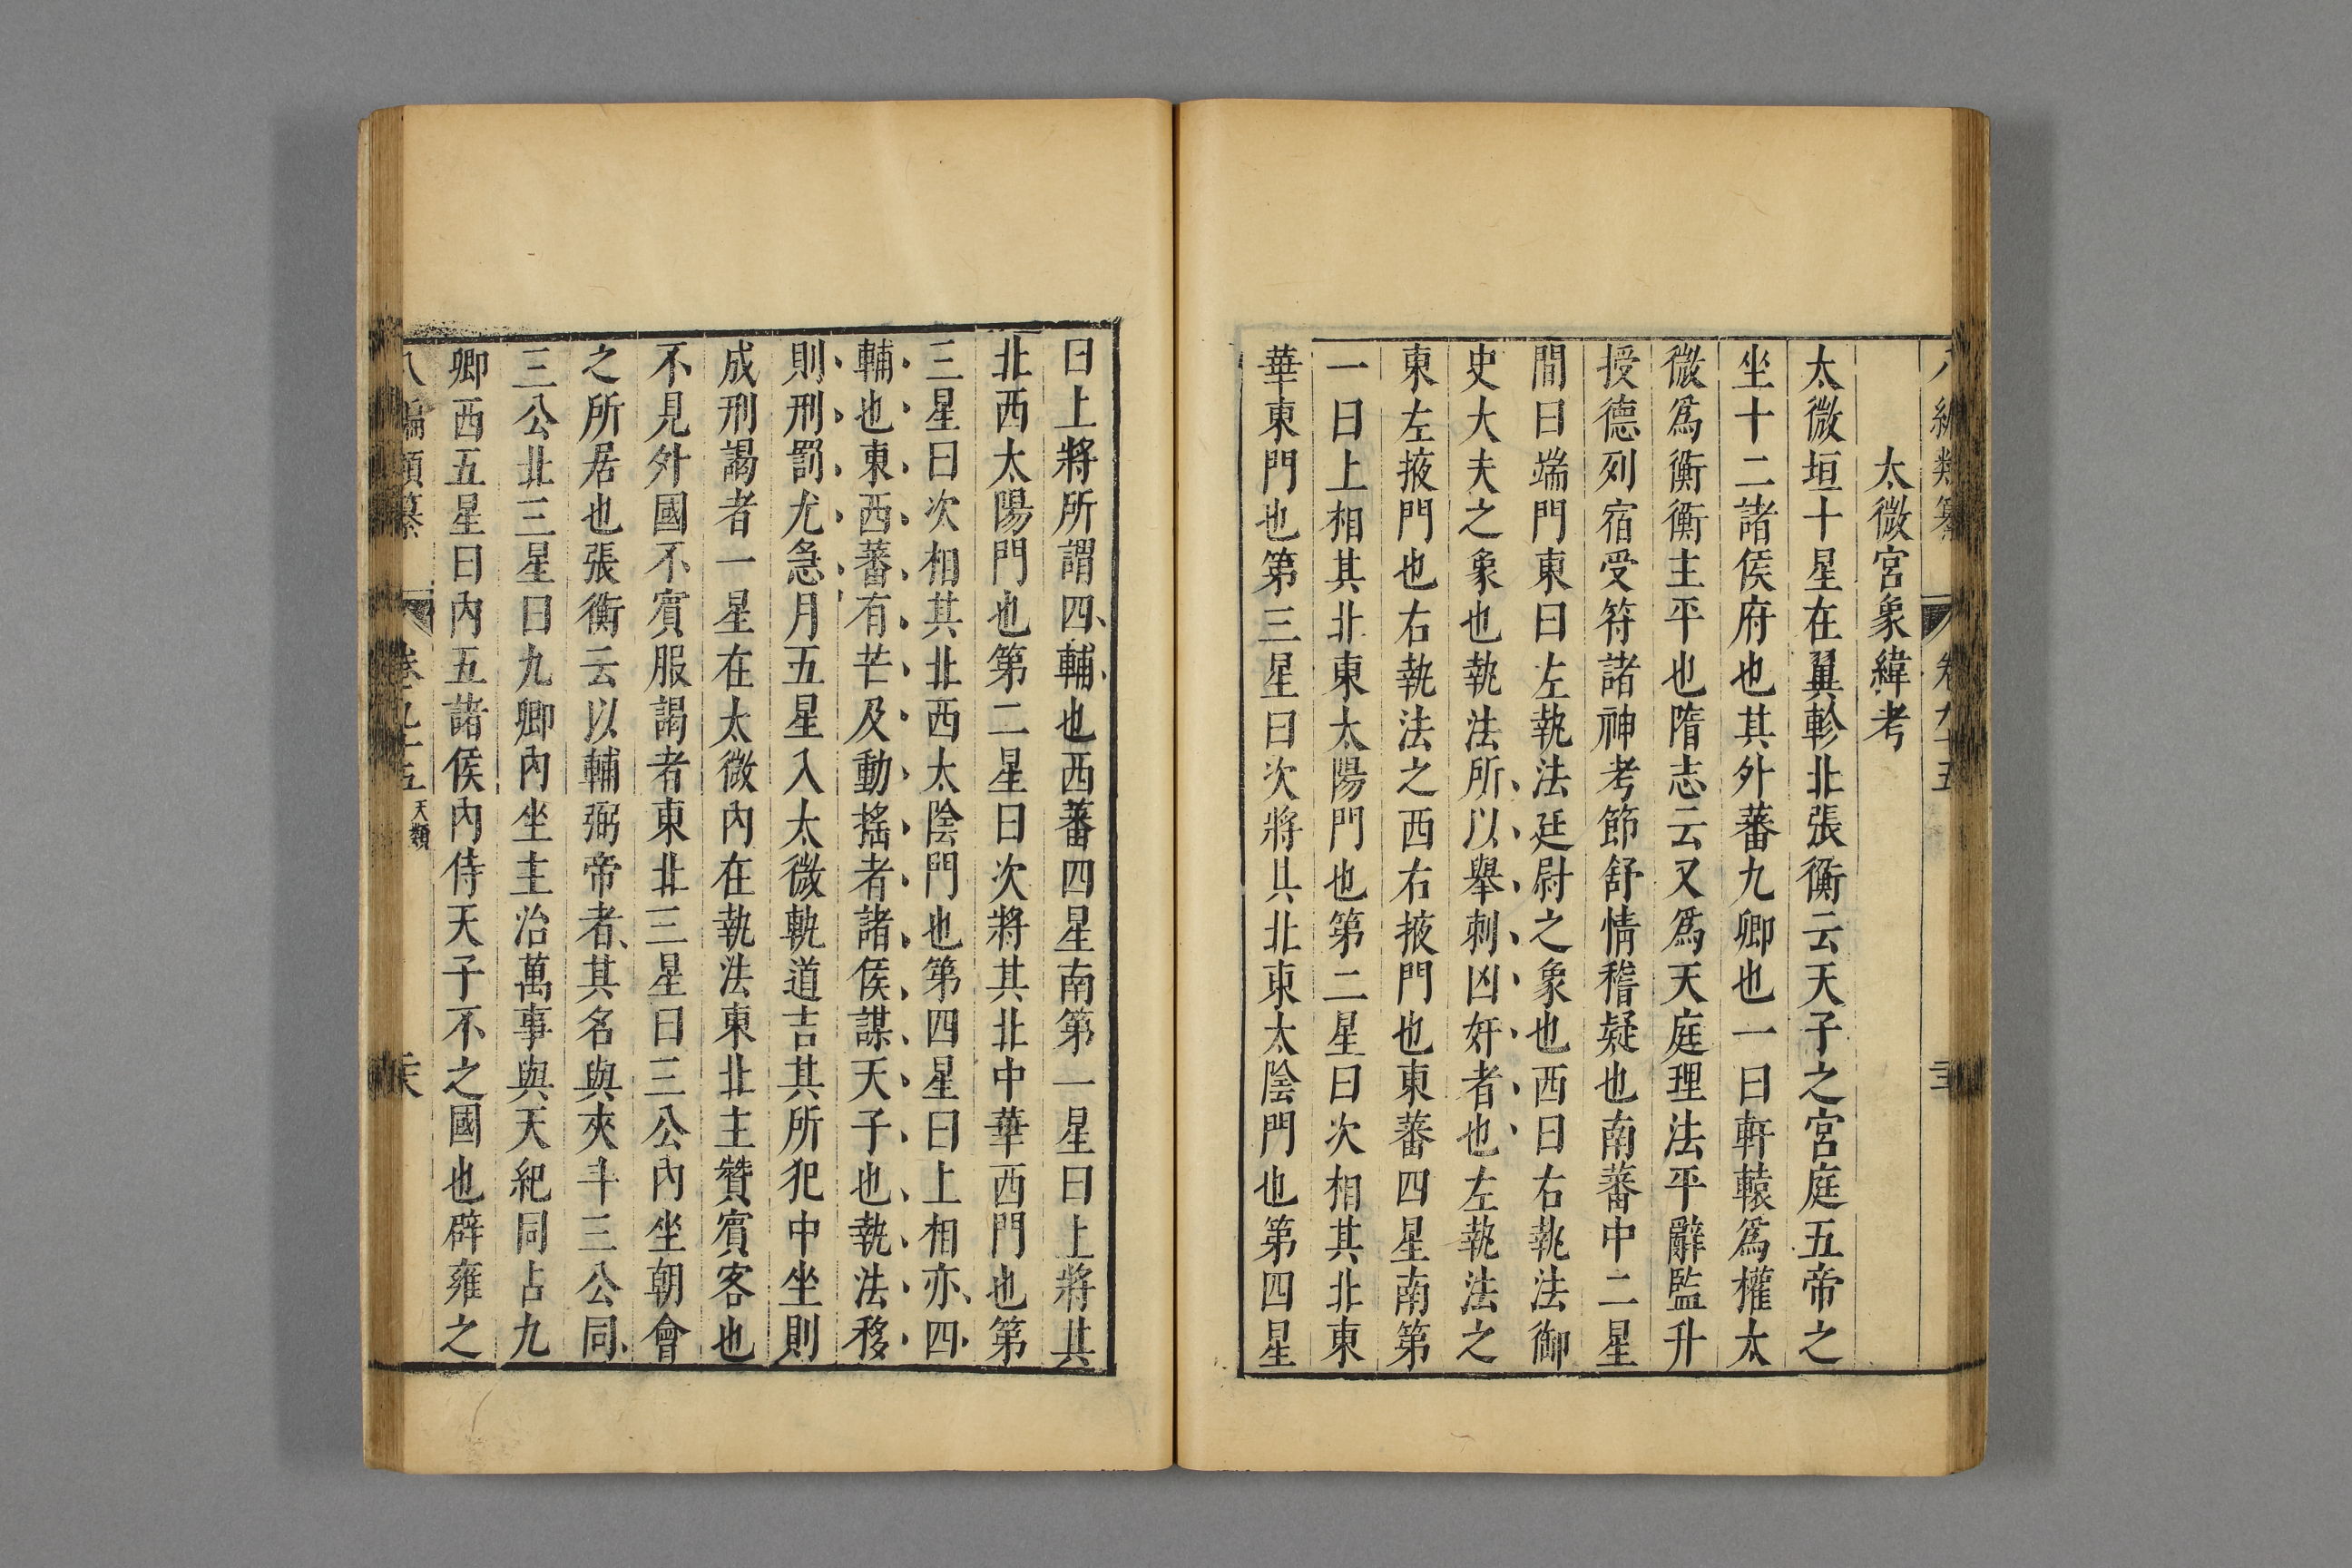 太微宮象緯考
太微垣十星在翼軫北張衡云天子之宮庭五帝之
坐十二諸侯府也其外蕃九卿也一曰軒轅爲權太
微爲衡衡主平也隋志云又爲天庭理法平辭監升
授德列宿受符諸神考節舒情稽疑也南蕃中二星
間曰端門東曰左執法廷尉之象也西曰右執法御
史大夫之象也執法所以舉刺凶奸者也左執法之
東左掖門也右執法之西右掖門也東蕃四星南第
一曰上相其北東太陽門也第二星曰次相其北東
華東門也第三星曰次將其北東太陰門也第四星
曰上將所謂四輔也西蕃四星南第一星曰上將其
北西太陽門也第二星曰次將其北中華西門也第
三星曰次相其北西太陰門也第四星曰上相亦四
輔也東西蕃有芒及動搖者諸侯謀天子也執法移
則刑罰尤急月五星入太微軌道吉其所犯中坐則
成刑謁者一星在太微內在執法東北主贊賓客也
不見外國不賓服謁者東北三星曰三公內坐朝會
之所居也張衡云以輔弼帝者其名與夾斗三公同
三公北三星曰九卿內坐主治萬事與天紀同占九
卿西五星曰內五諸侯內侍天子不之國也辟雍之
八編類纂 卷九十五 天類